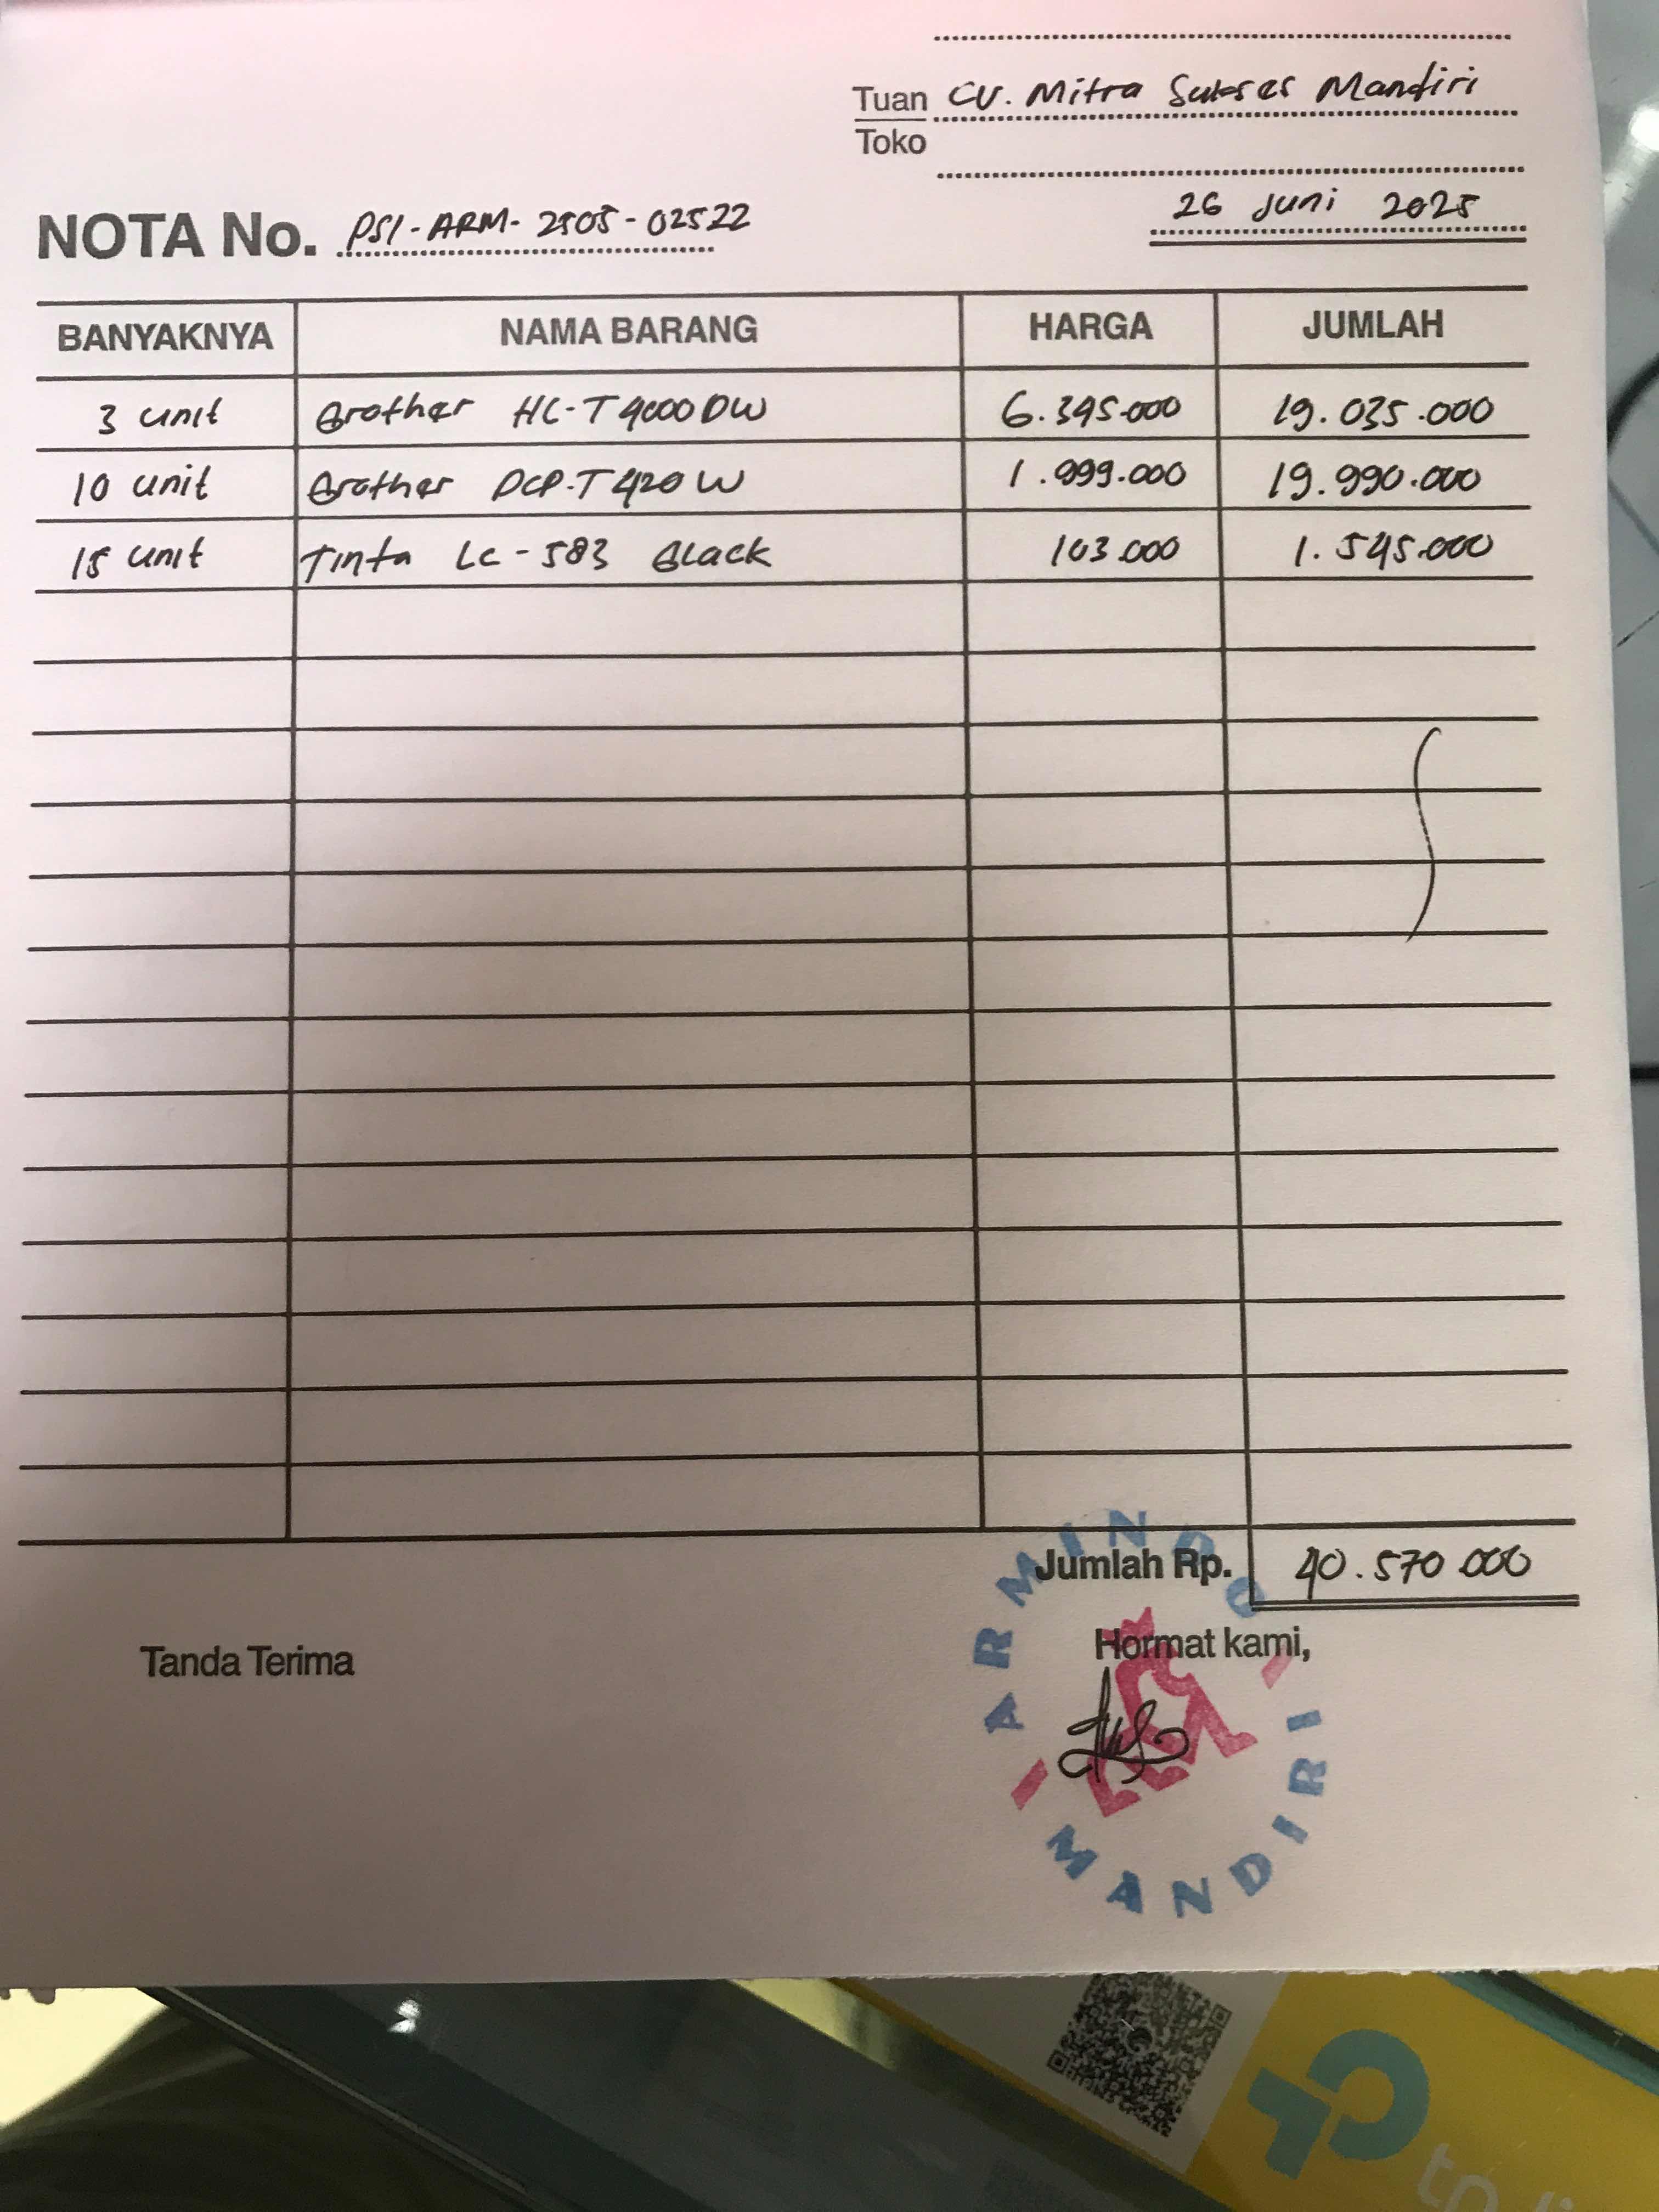 Tuan CV. Mitra Sukses Mandiri
Toko
26 Juni 2025
NOTA No. PSI-ARM-2505-02522
BANYAKNYA NAMA BARANG HARGA JUMLAH
3 unit Brother HL-T4000DW 6.345.000 19.035.000
10 unit Brother DCP-T420W 1.999.000 19.990.000
15 unit Tinta LC-583 Black 103.000 1.545.000
Jumlah Rp. 40.570.000
Tanda Terima Hormat kami,
ARMINDO
MANDIRI